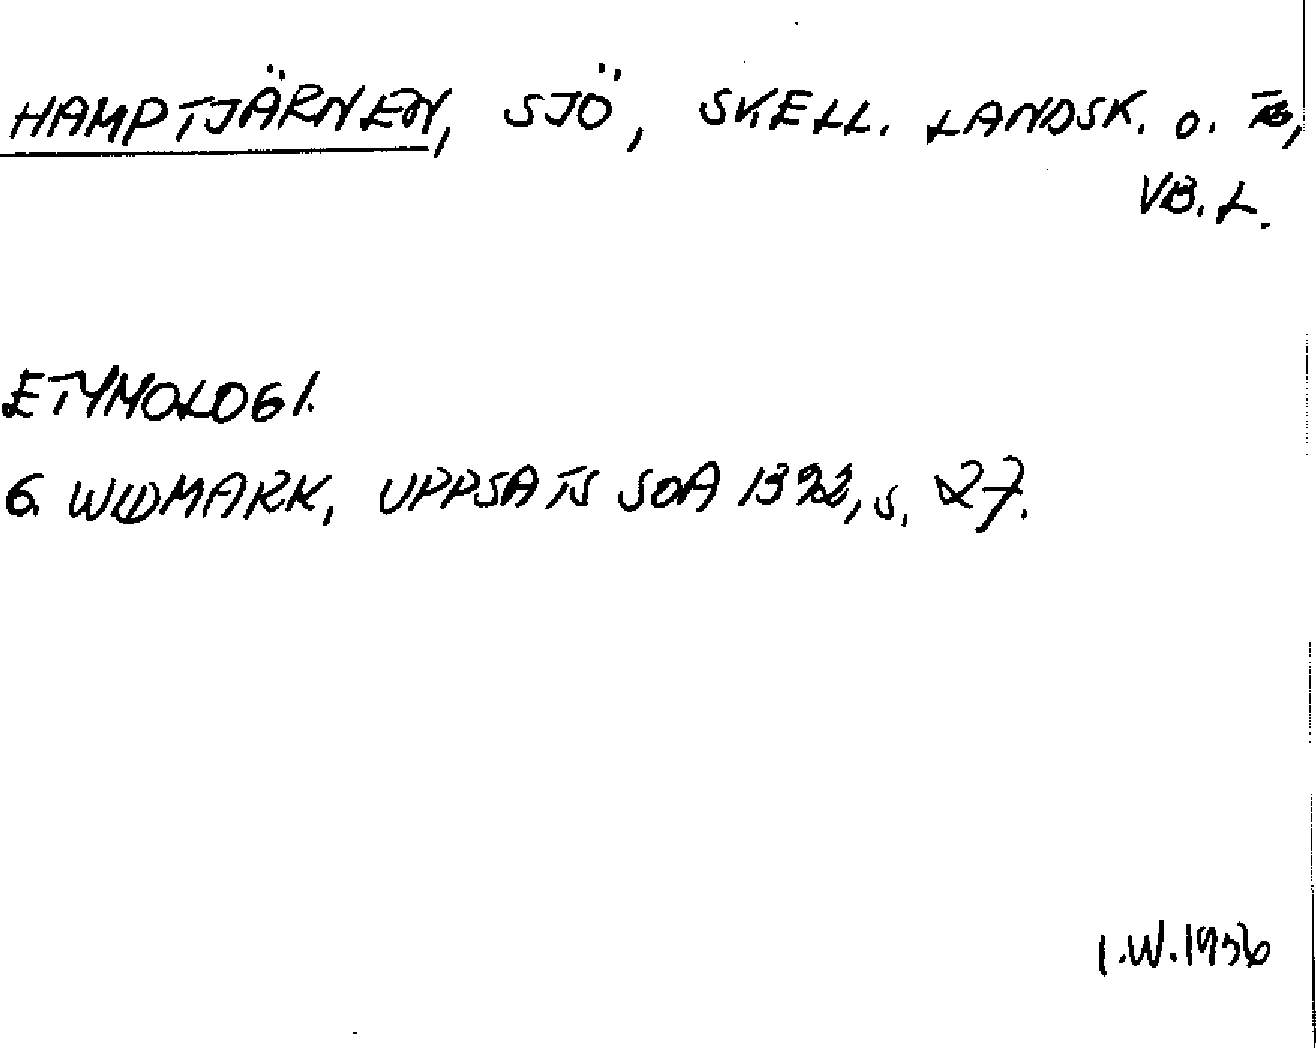 HAMPTJÄRNEN, SJÖ, SKELL. LANDSK. O. TB,
VB. L.
ETYMOLOGI.
G. WIDMARK, UPPSATS SOA 1322, S. 27.
I.W. 1956